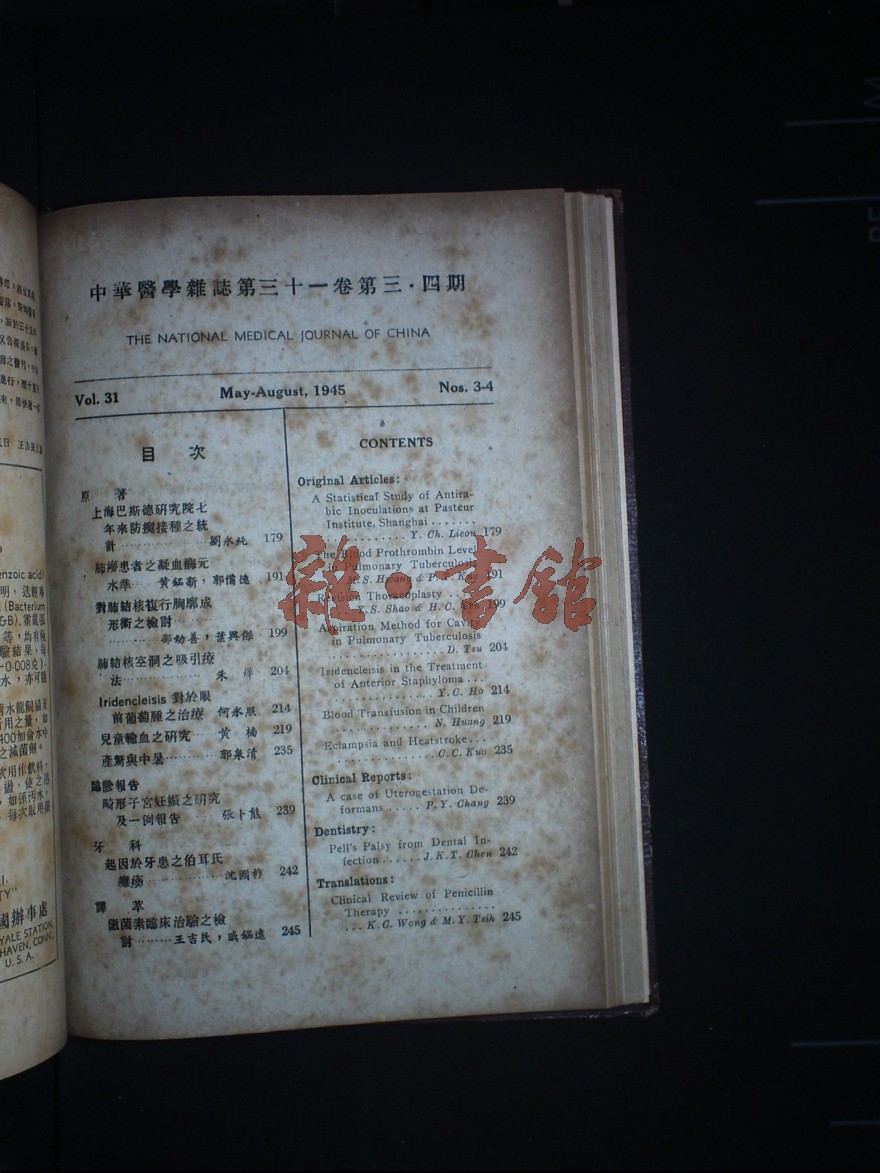 中華醫學雜誌第三十一卷第三·四期
THE NATIONAL MEDICAL JOURNAL OF CHINA
Vol. 31 May-August, 1945 Nos. 3-4
目 次
原 著
上海巴斯德研究院七
年來防瘈接種之統
計 劉永純 179
肺癆患者之凝血酶元
水準 黃銘新,郭備德 191
對肺結核複行胸廓成
形術之檢討
邵幼善,葉興傑 199
肺結核室洞之吸引療
法 朱 204
Iridencleisis 對於眼
前葡萄腫之治療 何永照 214
兒童輸血之研究 黃楠 219
產驚與中暑 郭泉清 235
臨診報告
畸形子宮妊娠之研究
及一例報告 張卜熊 239
牙 科
起因於牙患之伯耳氏
癱瘓 沈國祚 242
譯 萃
黴菌素臨床治驗之檢
討 王吉民,戚銘遠 245
CONTENTS
Original Articles:
A Statistical Study of Antira-
bic Inoculations at Pasteur
Institute, Shanghai .......
............ Y. Ch. Lieou 179
The Blood Prothrombin Level
in Pulmonary Tuberculosis
M.S. Hwang & P. Kuo 191
Revision Thoracoplasty
Y.S. Shao & H.C. 199
Aspiration Method for Cavity
in Pulmonary Tuberculosis
................ D. Tsu 204
Iridencleisis in the Treatment
of Anterior Staphyloma ...
............... Y.C. Ho 214
Blood Transfusion in Children
............ N. Huang 219
Eclampsia and Heatstroke...
............. C.C. Kuo 235
Clinical Reports:
A case of Uterogestation De-
formans ..... P.Y. Chang 239
Dentistry:
Pell's Palsy from Dental In-
fection ...... J.K.T. Chen 242
Translations:
Clinical Review of Penicillin
Therapy ...............
... K.C. Wong & M.Y. Tsih 245
雜·書館
enzoic acid)
(Bacterium
&B),
-0.008克).
400加侖水中
之滅菌劑。
TY"
國辦事處
YALE STATION,
HAVEN, CONN.,
U. S. A.